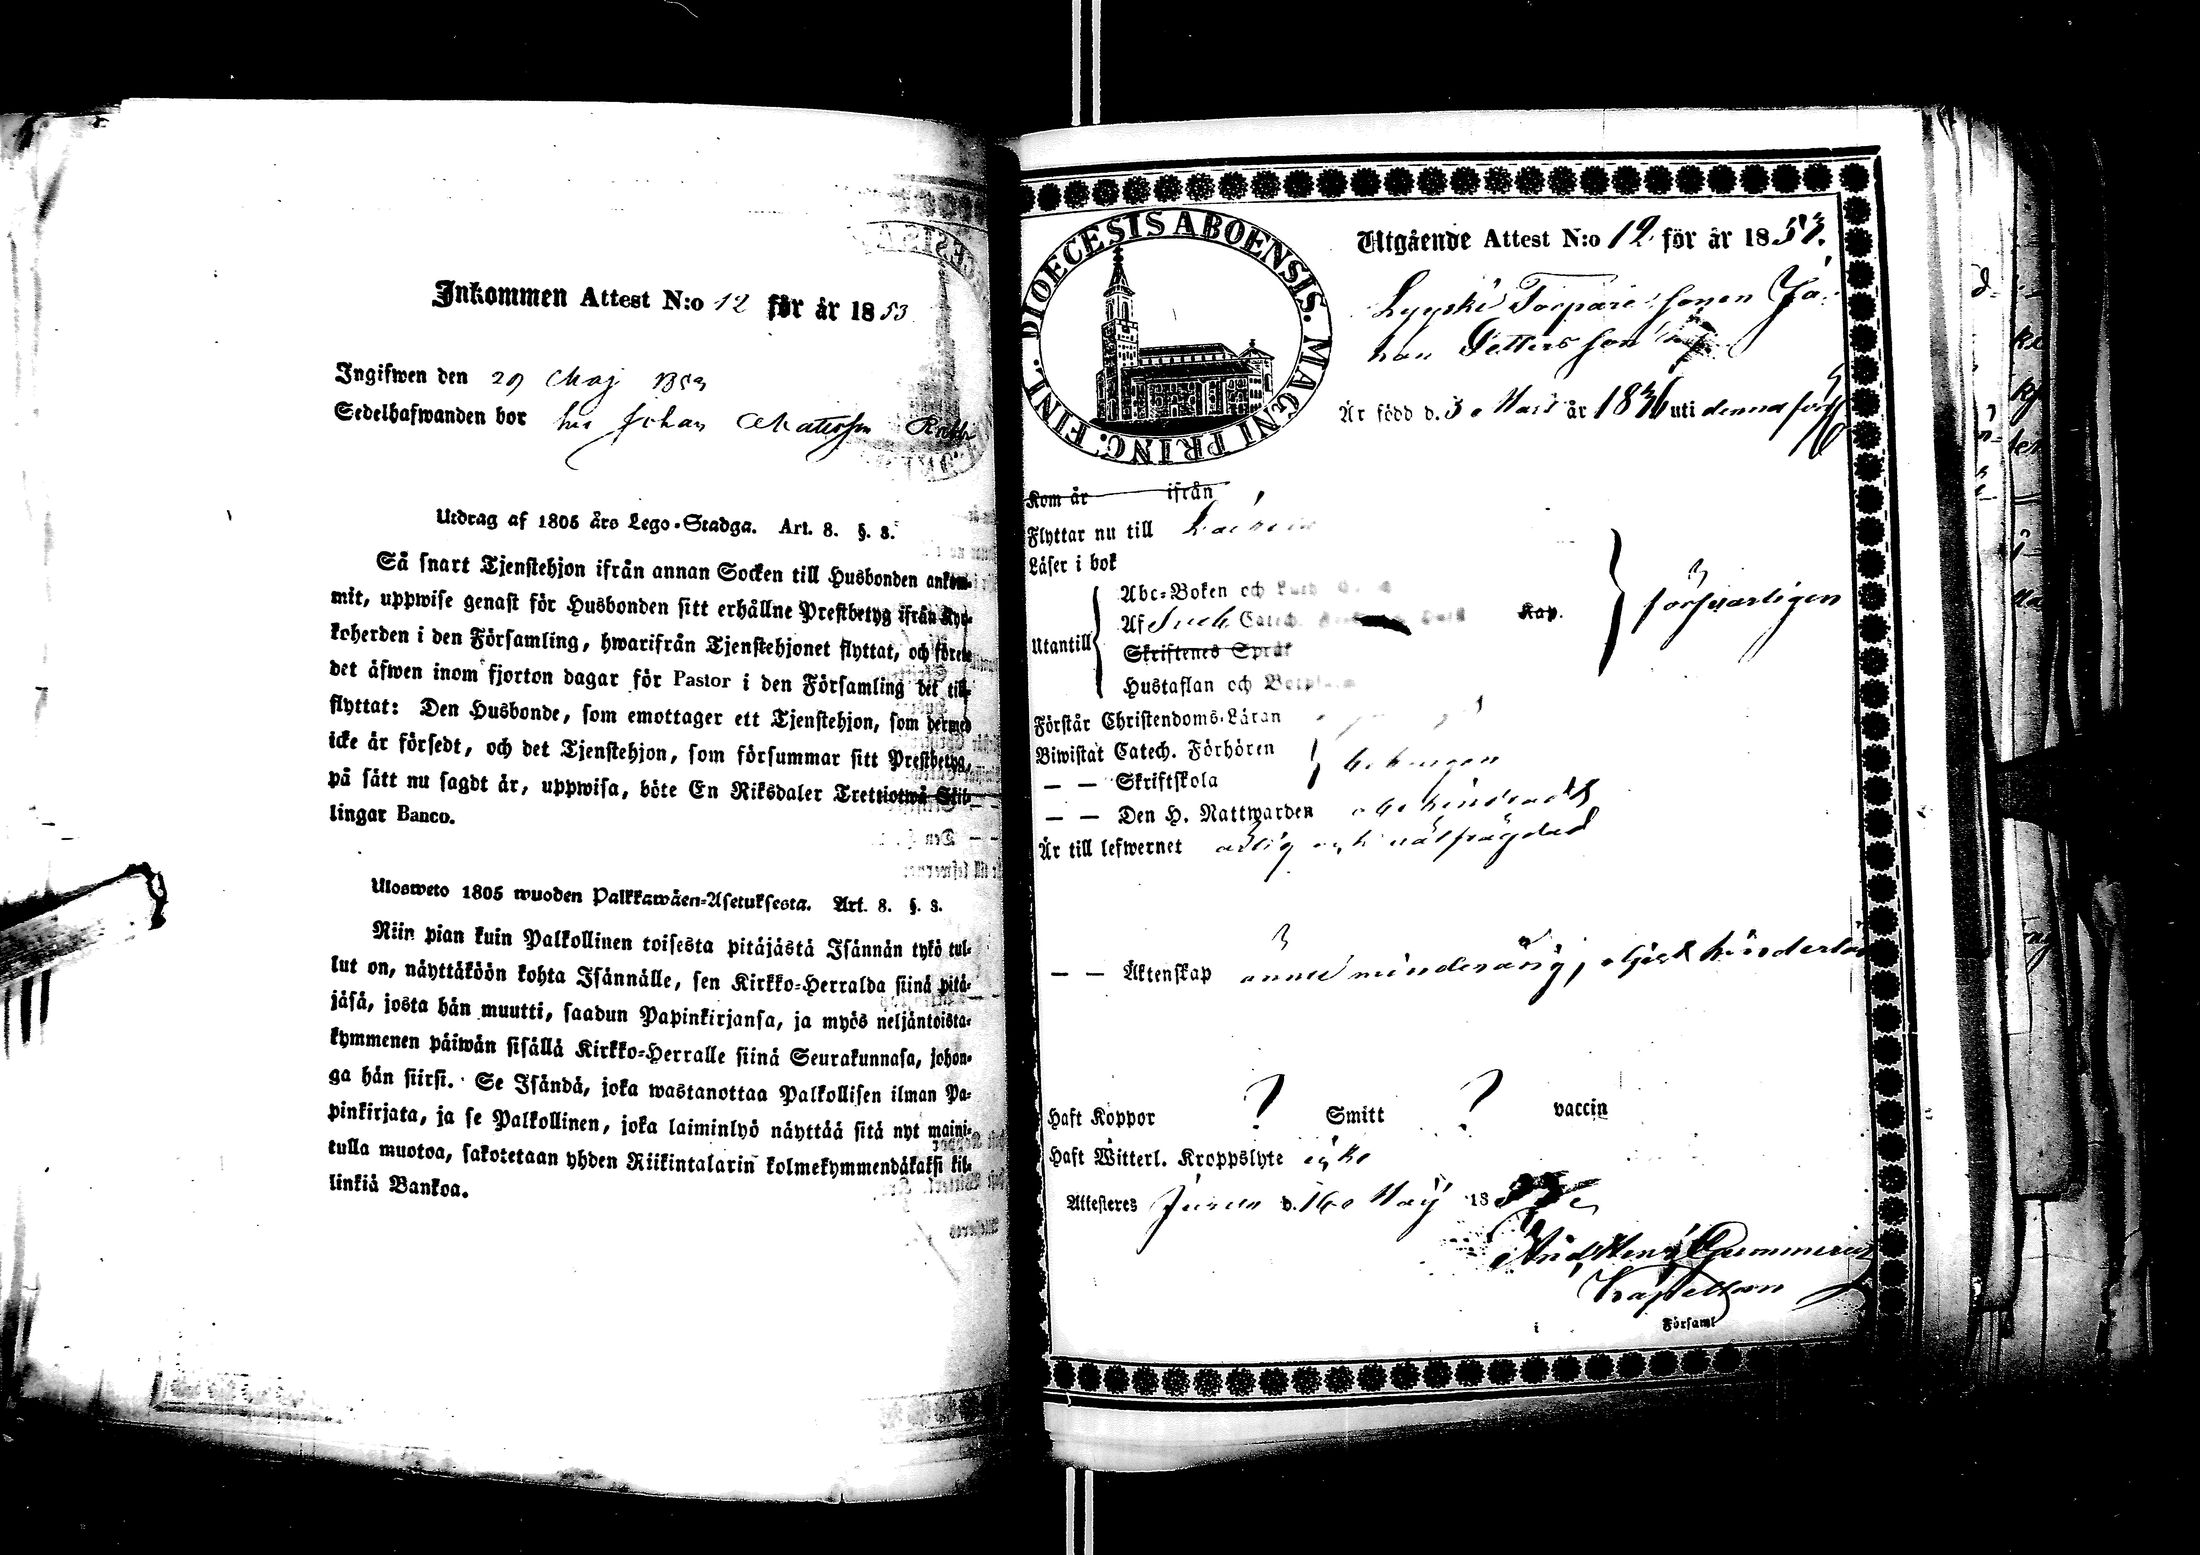 Inkommen Attest N:o 12 för år 1853
Ingifwen den 29 Maj 1853
Sedelhafwanden bor hos Johan Matsson
Utdrag af 1805 års Lego-Stadga. Art. 8. §. 8.
Så snart Tjenstehjon ifrån annan Socken till Husbonden ankom-
mit, uppwise genast för Husbonden sitt erhållne Prestbetyg ifrån Kyr-
koherden i den Församling, hwarifrån Tjenstehjonet flyttat, och förete
det äfwen inom fjorton dagar för Pastor i den Församling det till-
flyttat: Den Husbonde, som emottager ett Tjenstehjon, som dermed
icke är försedt, och det Tjenstehjon, som försummar sitt Prestbetyg,
på sätt nu sagdt är, uppwisa, böte En Riksdaler Trettiotwå Skil-
lingar Banco.
Ulosweto 1805 wuoden Palkkawäen-Asetuksesta. Art. 8. §. 8.
Niin pian kuin Palkollinen toisesta pitäjästä Isännän tykö tul-
lut on, näyttäköön kohta Isännälle, sen Kirkko-Herralda siinä pitä-
jäsä, josta hän muutti, saadun Papinkirjansa, ja myös neljäntoista-
kymmenen päiwän sisällä Kirkko-Herralle siinä Seurakunnasa, johon-
ga hän siirsi. Se Isändä, joka wastanottaa Palkollisen ilman Pa-
pinkirjata, ja se Palkollinen, joka laiminlyö näyttää sitä nyt maini-
tulla muotoa, sakotetaan yhden Riikintalarin kolmekymmendäkaksi kil-
linkiä Bankoa.
DIOECESIS ABOENSIS. MAGNI PRINC. FINL.
Utgående Attest N:o 12 för år 1853.
Torpare sonen Jo-
han Pettersson
Är född d. 30 Mars år 1836 uti denna förs
Kom år ifrån
Flyttar nu till
Läser i bok
Utantill
Abc-Boken och Luth
Af Catech. Kap.
Skriftenes Språk
Hustaflan och
försvarligen
Förstår Christendoms-Läran
Biwistat Catech. Förhören
— — Skriftskola
— — Den H. Nattwarden obehindradt
Är till lefwernet ärlig och välfrägdad
— — Äktenskap ännu minderårig,
Haft Koppor ? Smitt ? vaccin
Haft Witterl. Kroppslyte ej
Attesteres d. 16 Maj 18
And Hen Gummerus
Kapellan
i Församl